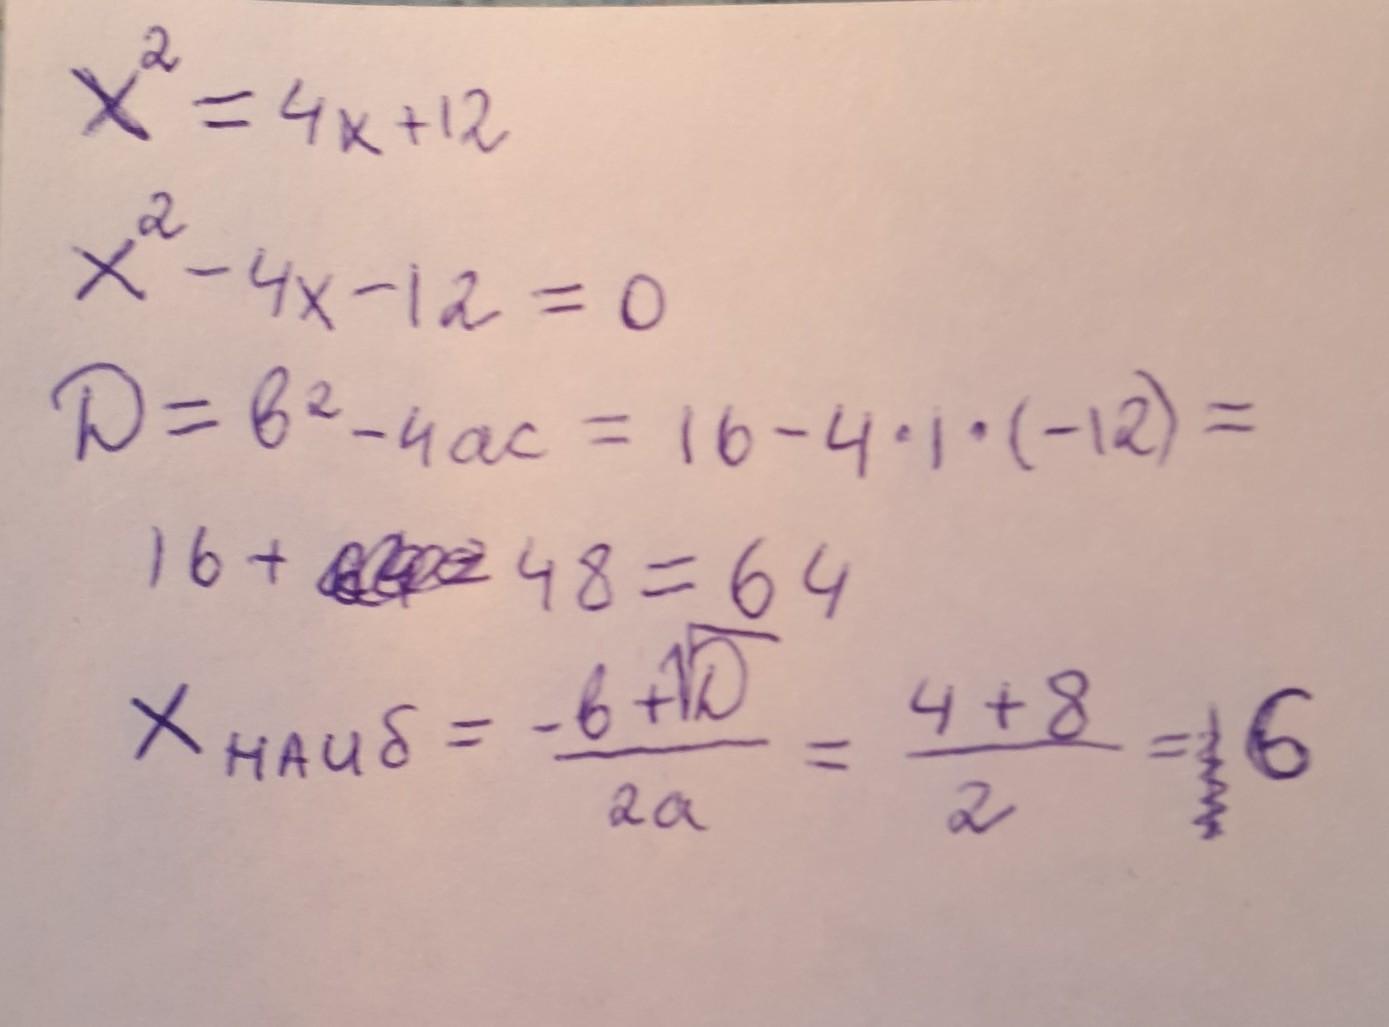 x² = 4x + 12
x² - 4x - 12 = 0
D = b² - 4ac = 16 - 4 · 1 · (-12) =
16 + 48 = 64
x наиб = (-b + √D) / 2a = (4 + 8) / 2 = 6